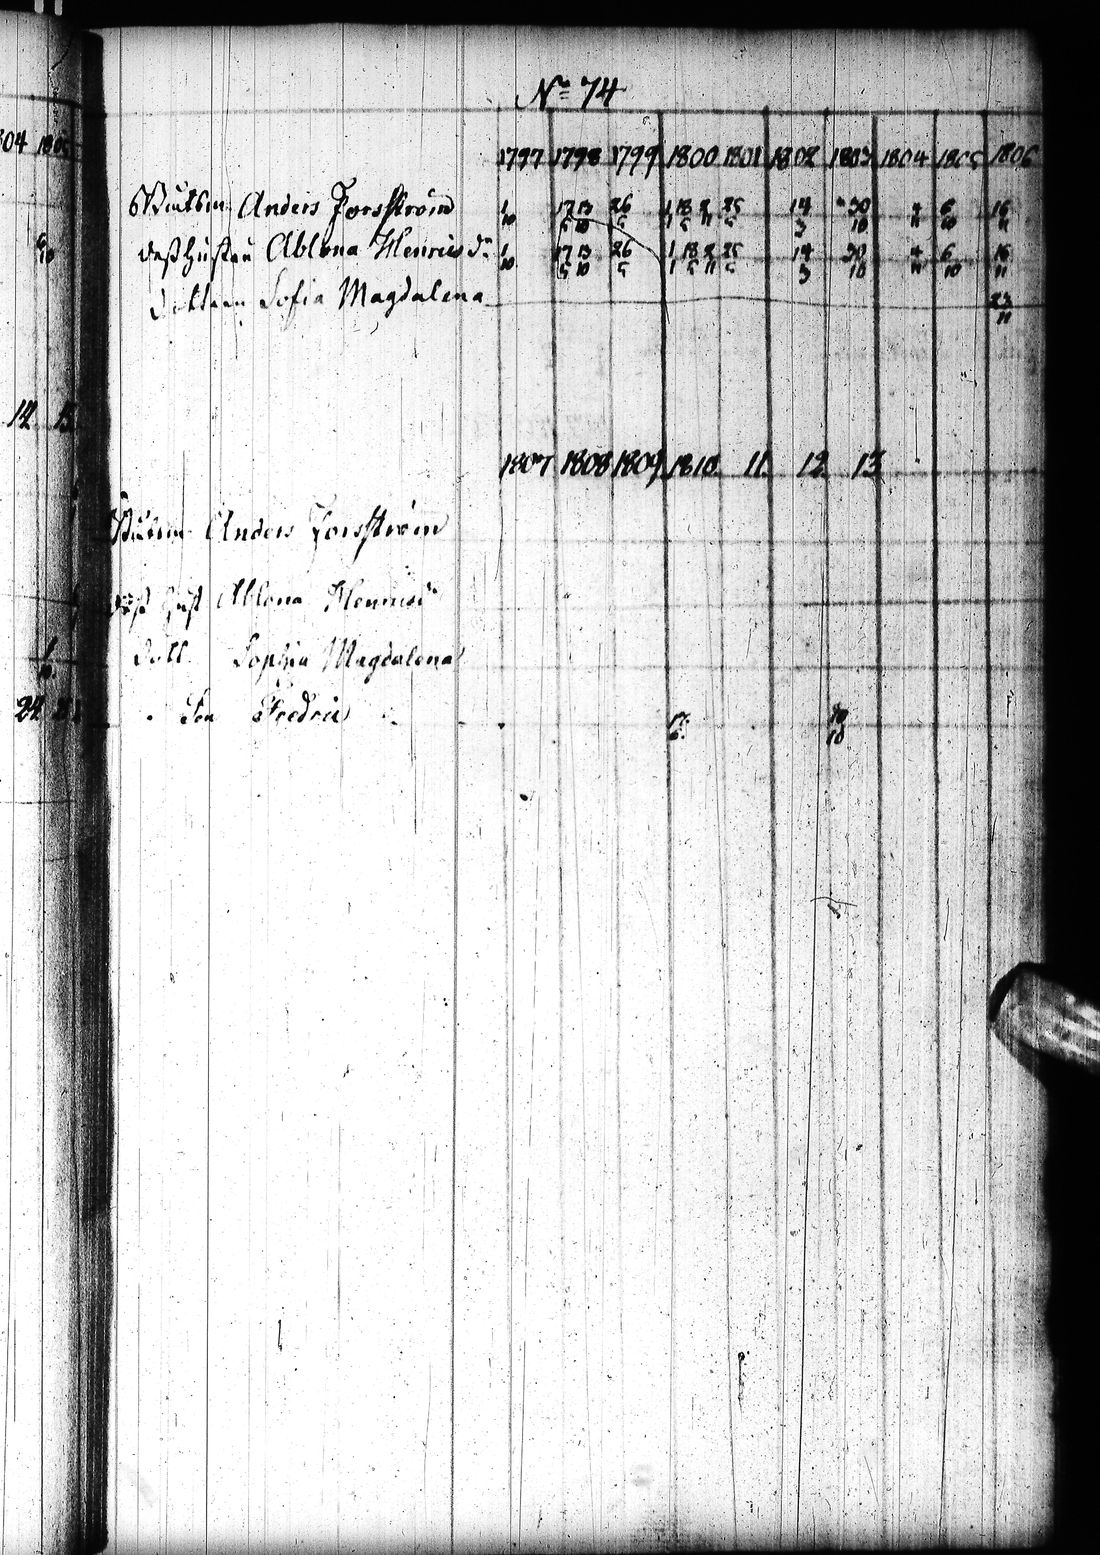 04 1805
Nº 74
1797 1798 1799 1800 1801 1802 1803 1804 1805 1806
Anders Forsström 1/10 17/5 13/10 26/5 1/1 18/5 2/11 25/5 14/3 30/10 4/11 6/10 16/11
dess Hustru Ablona Henricsdr 1/10 17/5 13/10 26/5 1/1 18/5 2/11 25/5 14/3 30/10 4/11 6/10 16/11
dottren Sofia Magdalena 23/11
14 15
1807 1808 1809 1810 11 12 13
Anders Forsström
dess Hust Ablona Henricsd
dott Sophia Magdalena
Son Fredric 17/6 10/10